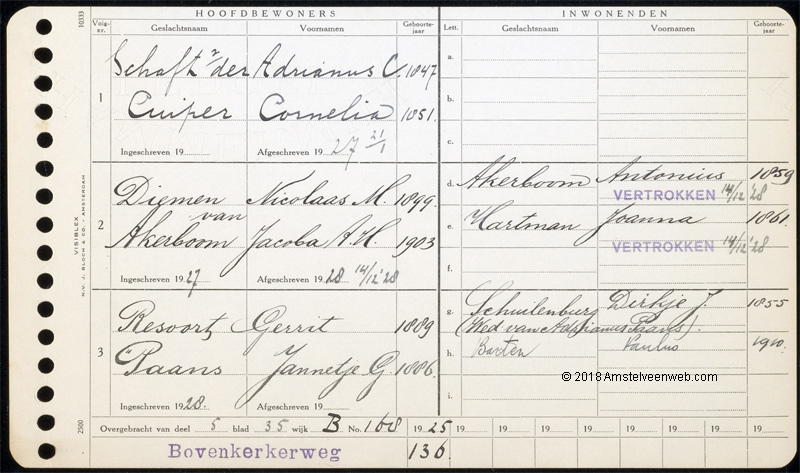 10333
HOOFDBEWONERS INWONENDEN
Volg-nr. Geslachtsnaam Voornamen Geboorte-jaar Lett. Geslachtsnaam Voornamen Geboorte-jaar
1
Schaft v/der Adrianus C. 1847 a.
Cuiper Cornelia 1851. b.
c.
Ingeschreven 19 Afgeschreven 19 27 21/1
2
Diemen van Nicolaas M. 1899. d. Akerboom Antonius 1859
VERTROKKEN 14/12 '28
Akerboom Jacoba A.H. 1903 e. Hartman Joanna 1861.
VERTROKKEN 14/12 '28
f.
Ingeschreven 19 27 Afgeschreven 19 28 14/12 '28
3
Resoort Gerrit 1889 g. Schuilenburg Dirkje J. 1855
(Wed van Adrianus Paans).
Paans Jannetje G. 1886. h. Barten Paulus 1910.
i.
Ingeschreven 19 28. Afgeschreven 19
© 2018 Amstelveenweb.com
Overgebracht van deel 5 blad 35 wijk B No. 168 19 25 19 19 19 19 19 19 19 19
Bovenkerkerweg 136.
VISIBLEX
N.V. J. BLOCH & CO. - AMSTERDAM
2500